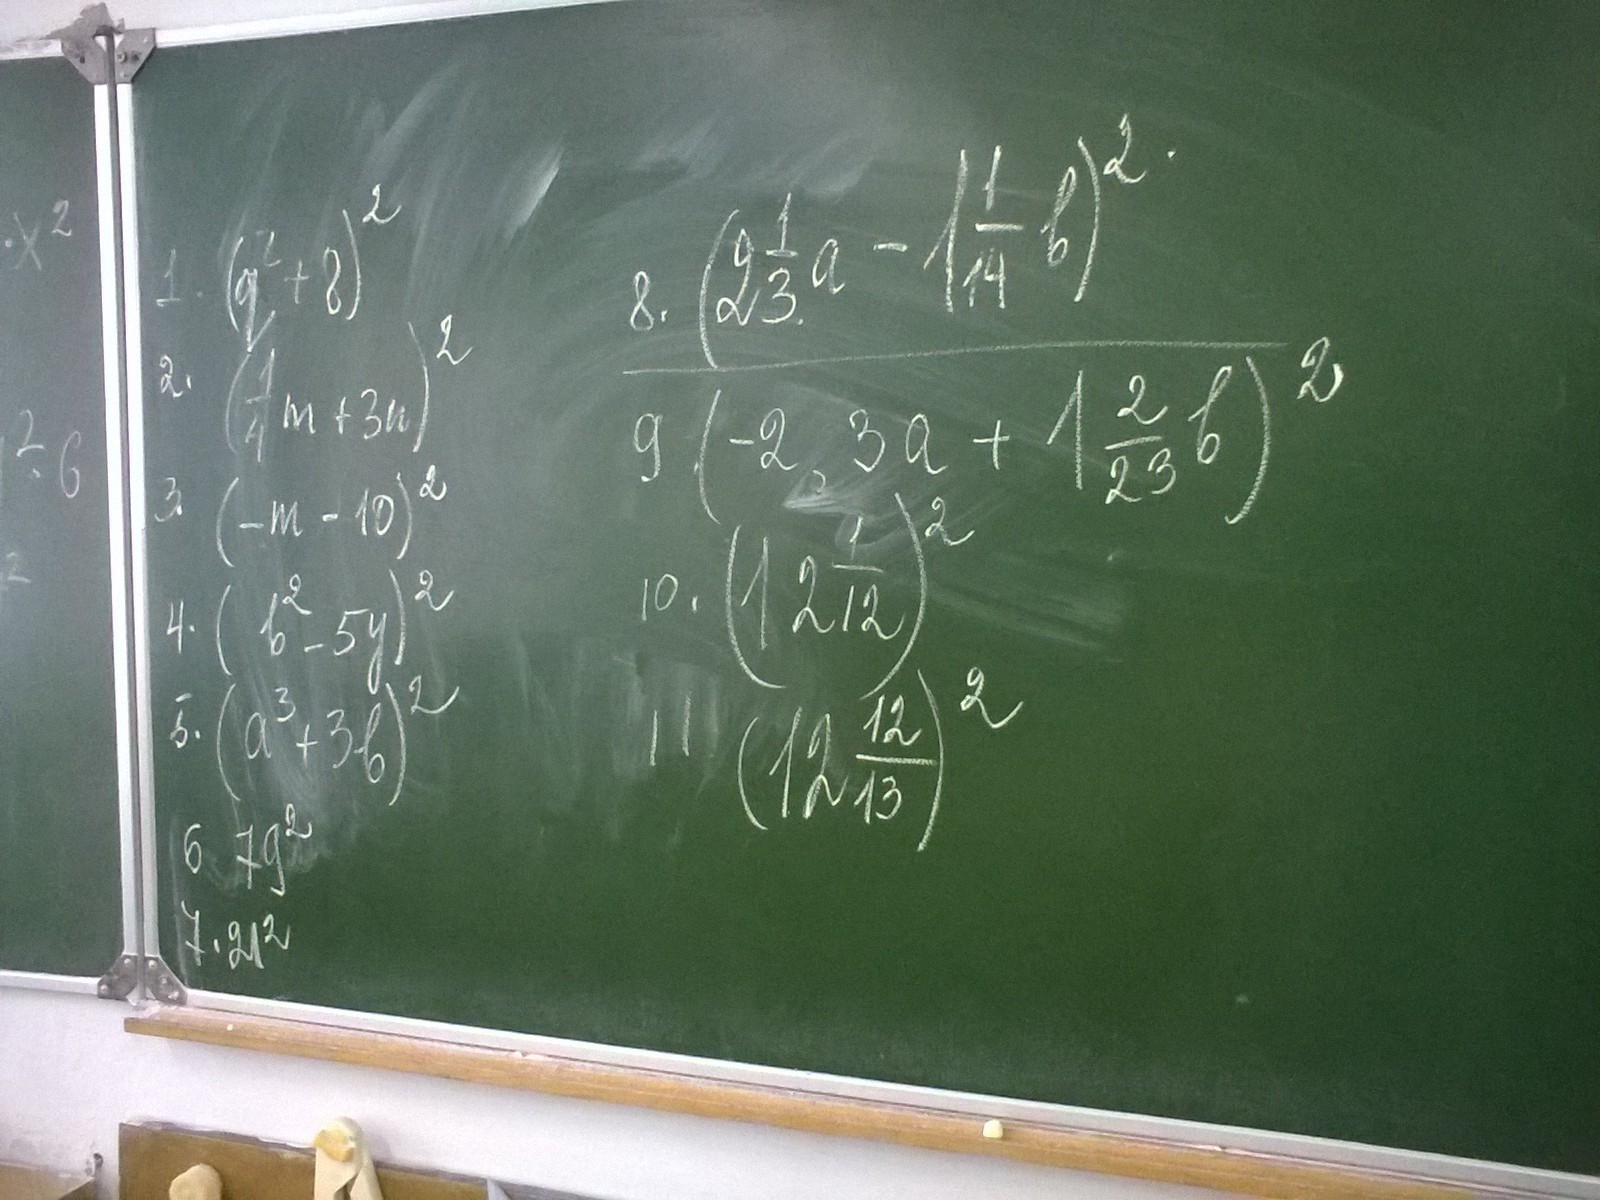 · x²
² · 6
²
1. (q² + 8)²
2. (1/4 m + 3n)²
3. (-m - 10)²
4. (b² - 5y)²
5. (a³ + 3b)²
6 79²
7. 21²
8. (2 1/3 a - 1 1/14 b)².
9. (-2,3a + 1 2/23 b)²
10. (12 1/12)²
11 (12 12/13)²